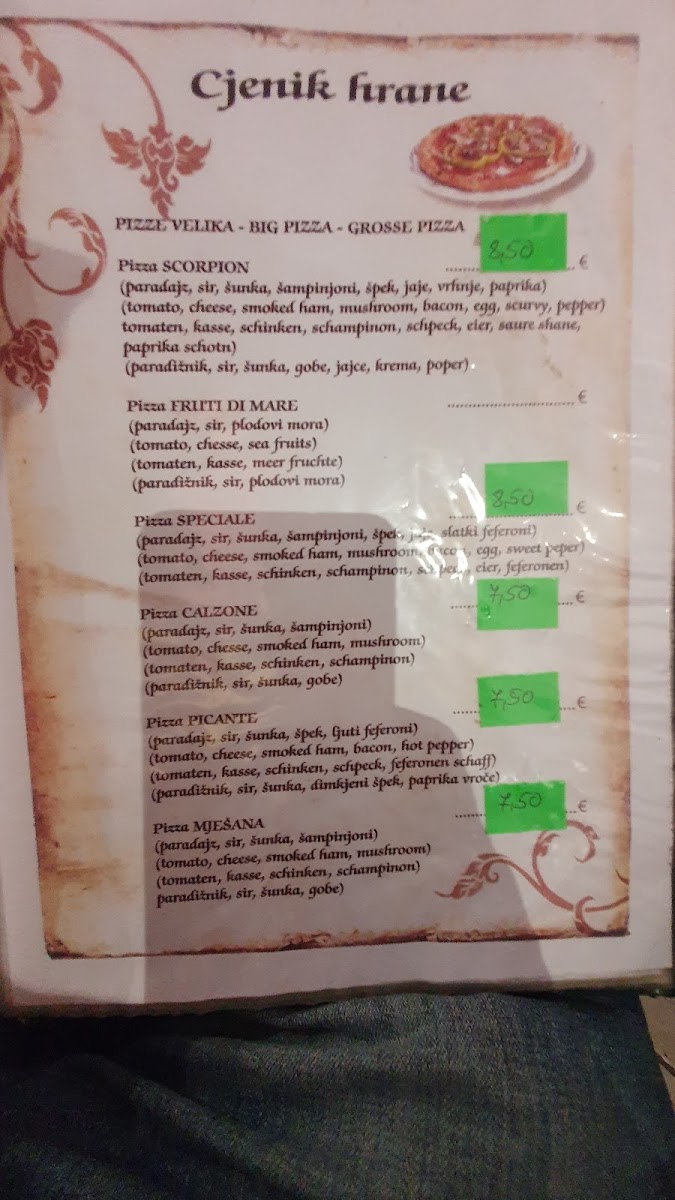 Cjenik hrane
PIZZE VELIKA - BIG PIZZA - GROSSE PIZZA
8,50
Pizza SCORPION ........ €
(paradajz, sir, šunka, šampinjoni, špek, jaje, vrhnje, paprika)
(tomato, cheese, smoked ham, mushroom, bacon, egg, scurvy, pepper)
tomaten, kasse, schinken, schampinon, schpeck, eier, saure shane,
paprika schotn)
(paradižnik, sir, šunka, gobe, jajce, krema, poper).
Pizza FRUTI DI MARE ........ €
(paradajz, sir, plodovi mora)
(tomato, chesse, sea fruits)
(tomaten, kasse, meer fruchte)
(paradižnik, sir, plodovi mora)
8,50
Pizza SPECIALE ........ €
(paradajz, sir, šunka, šampinjoni, špek, slatki feferoni)
(tomato, cheese, smoked ham, mushroom, bacon, egg, sweet peper)
(tomaten, kasse, schinken, schampinon, schpeck, eier, feferonen)
7,50
Pizza CALZONE ........ €
(paradajz, sir, šunka, šampinjoni)
(tomato, chesse, smoked ham, mushroom)
(tomaten, kasse, schinken, schampinon)
(paradižnik, sir, šunka, gobe)
7,50
Pizza PICANTE ........ €
(paradajz, sir, šunka, špek, ljuti feferoni)
(tomato, cheese, smoked ham, bacon, hot pepper)
(tomaten, kasse, schinken, schpeck, feferonen schaff)
(paradižnik, sir, šunka, dimkjeni špek, paprika vroče)
7,50
Pizza MJEŠANA ........ €
(paradajz, sir, šunka, šampinjoni)
(tomato, cheese, smoked ham, mushroom)
(tomaten, kasse, schinken, schampinon)
paradižnik, sir, šunka, gobe)